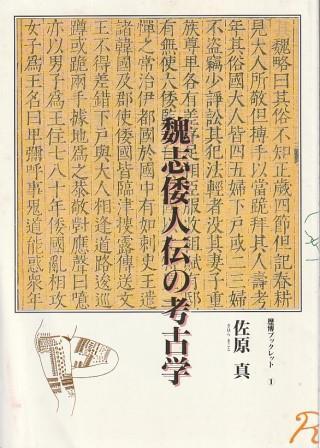 魏略曰其俗不知正歳四節但記春耕
見大人所敬但搏手以當跪拜其人壽考
年其俗國大人皆四五婦下戸或二三婦
不盗竊少諍訟其犯法輕者没其妻子重
族尊卑各有差序足相臣服收租賦
有無使大倭
憚之常治伊都國於國中有如刺史王遣
諸國及郡使倭國皆臨津搜露傳送文
王不得差錯下戸與大人相逢道路逡巡
蹲或跪兩手據地爲之恭敬對應聲曰噫
亦以男子爲王住七八十年倭國亂相攻
女子爲王名曰卑彌呼事鬼道能惑衆年
魏志倭人伝の考古学
歴博ブックレット ①
佐原 真
さはら まこと